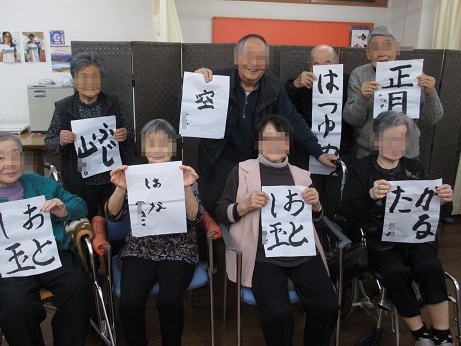 ふじ
山
空
はつゆめ
正月
おと
し玉
はな
おと
し玉
かる
た